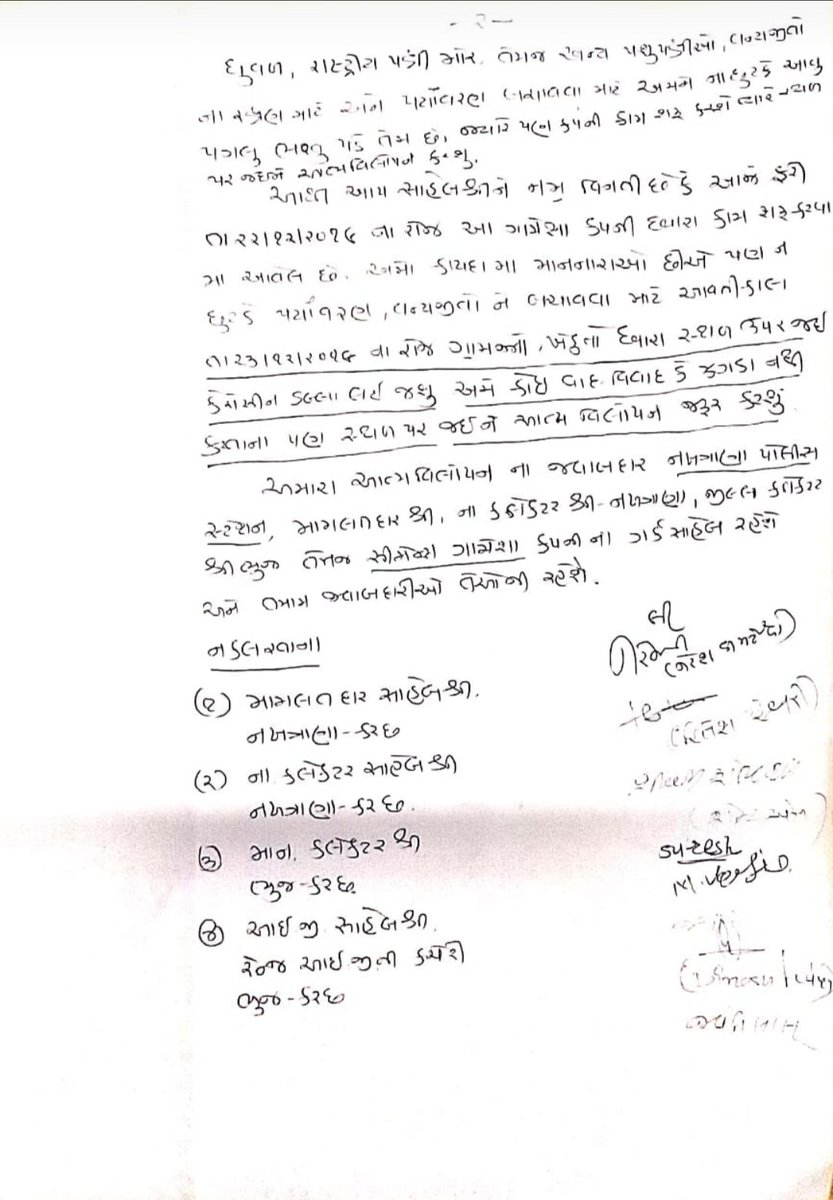 - ૨ -
ઘુવળ, રાષ્ટ્રીય પક્ષી મોર, તેમજ અન્ય પશુપક્ષીઓ, વન્યજીવો
ના રક્ષણ માટે અને પર્યાવરણ બચાવવા માટે અમને ના છુટકે આવુ
પગલુ ભરવુ પડે તેમ છે, જ્યારે પણ કંપની કામ શરૂ કરશે ત્યારે સ્થળ
પર જઇને આત્મવિલોપન કરશું.
આથી આપ સાહેબશ્રીને નમ્ર વિનંતી છે કે આજે ફરી
તા ૨૨/૧૨/૨૦૧૬ ના રોજ આ ગામેસા કંપની દ્વારા કામ શરૂ કરવા
મા આવેલ છે. અમો કાયદા મા માનનારાઓ છીએ પણ ન
છુટકે પર્યાવરણ, વન્યજીવો ને બચાવવા માટે આવતીકાલ
તા ૨૩/૧૨/૨૦૧૬ ના રોજ ગામજનો, ખેડુતો દ્વારા સ્થળ ઉપર જઇ
કેરોસીન ડબ્બા લઈ જશુ અમે કોઇ વાદ વિવાદ કે ઝગડા નથી
કરતાના પણ સ્થળ પર જઇને આત્મ વિલોપન જરૂર કરશું.
અમારા આત્મવિલોપન ના જવાબદાર નખત્રાણા પોલીસ
સ્ટેશન, મામલતદાર શ્રી, ના કલેકટર શ્રી - નખત્રાણા, જીલ્લા કલેકટર
શ્રી ભુજ તેમજ ગામેશા કંપની ના ગર્ડ સાહેબ રહેશે
અને તમામ જવાબદારીઓ તેઓની રહેશે.
નકલ રવાના
લી
(૧) મામલતદાર સાહેબશ્રી.
નખત્રાણા - કચ્છ
(૨) ના કલેકટર સાહેબ શ્રી
નખત્રાણા - કચ્છ.
(૩) માન. કલેકટર શ્રી
ભુજ - કચ્છ.
suresh
(૪) આઈ જી. સાહેબ શ્રી.
રેન્જ આઈજીની કચેરી
ભુજ - કચ્છ